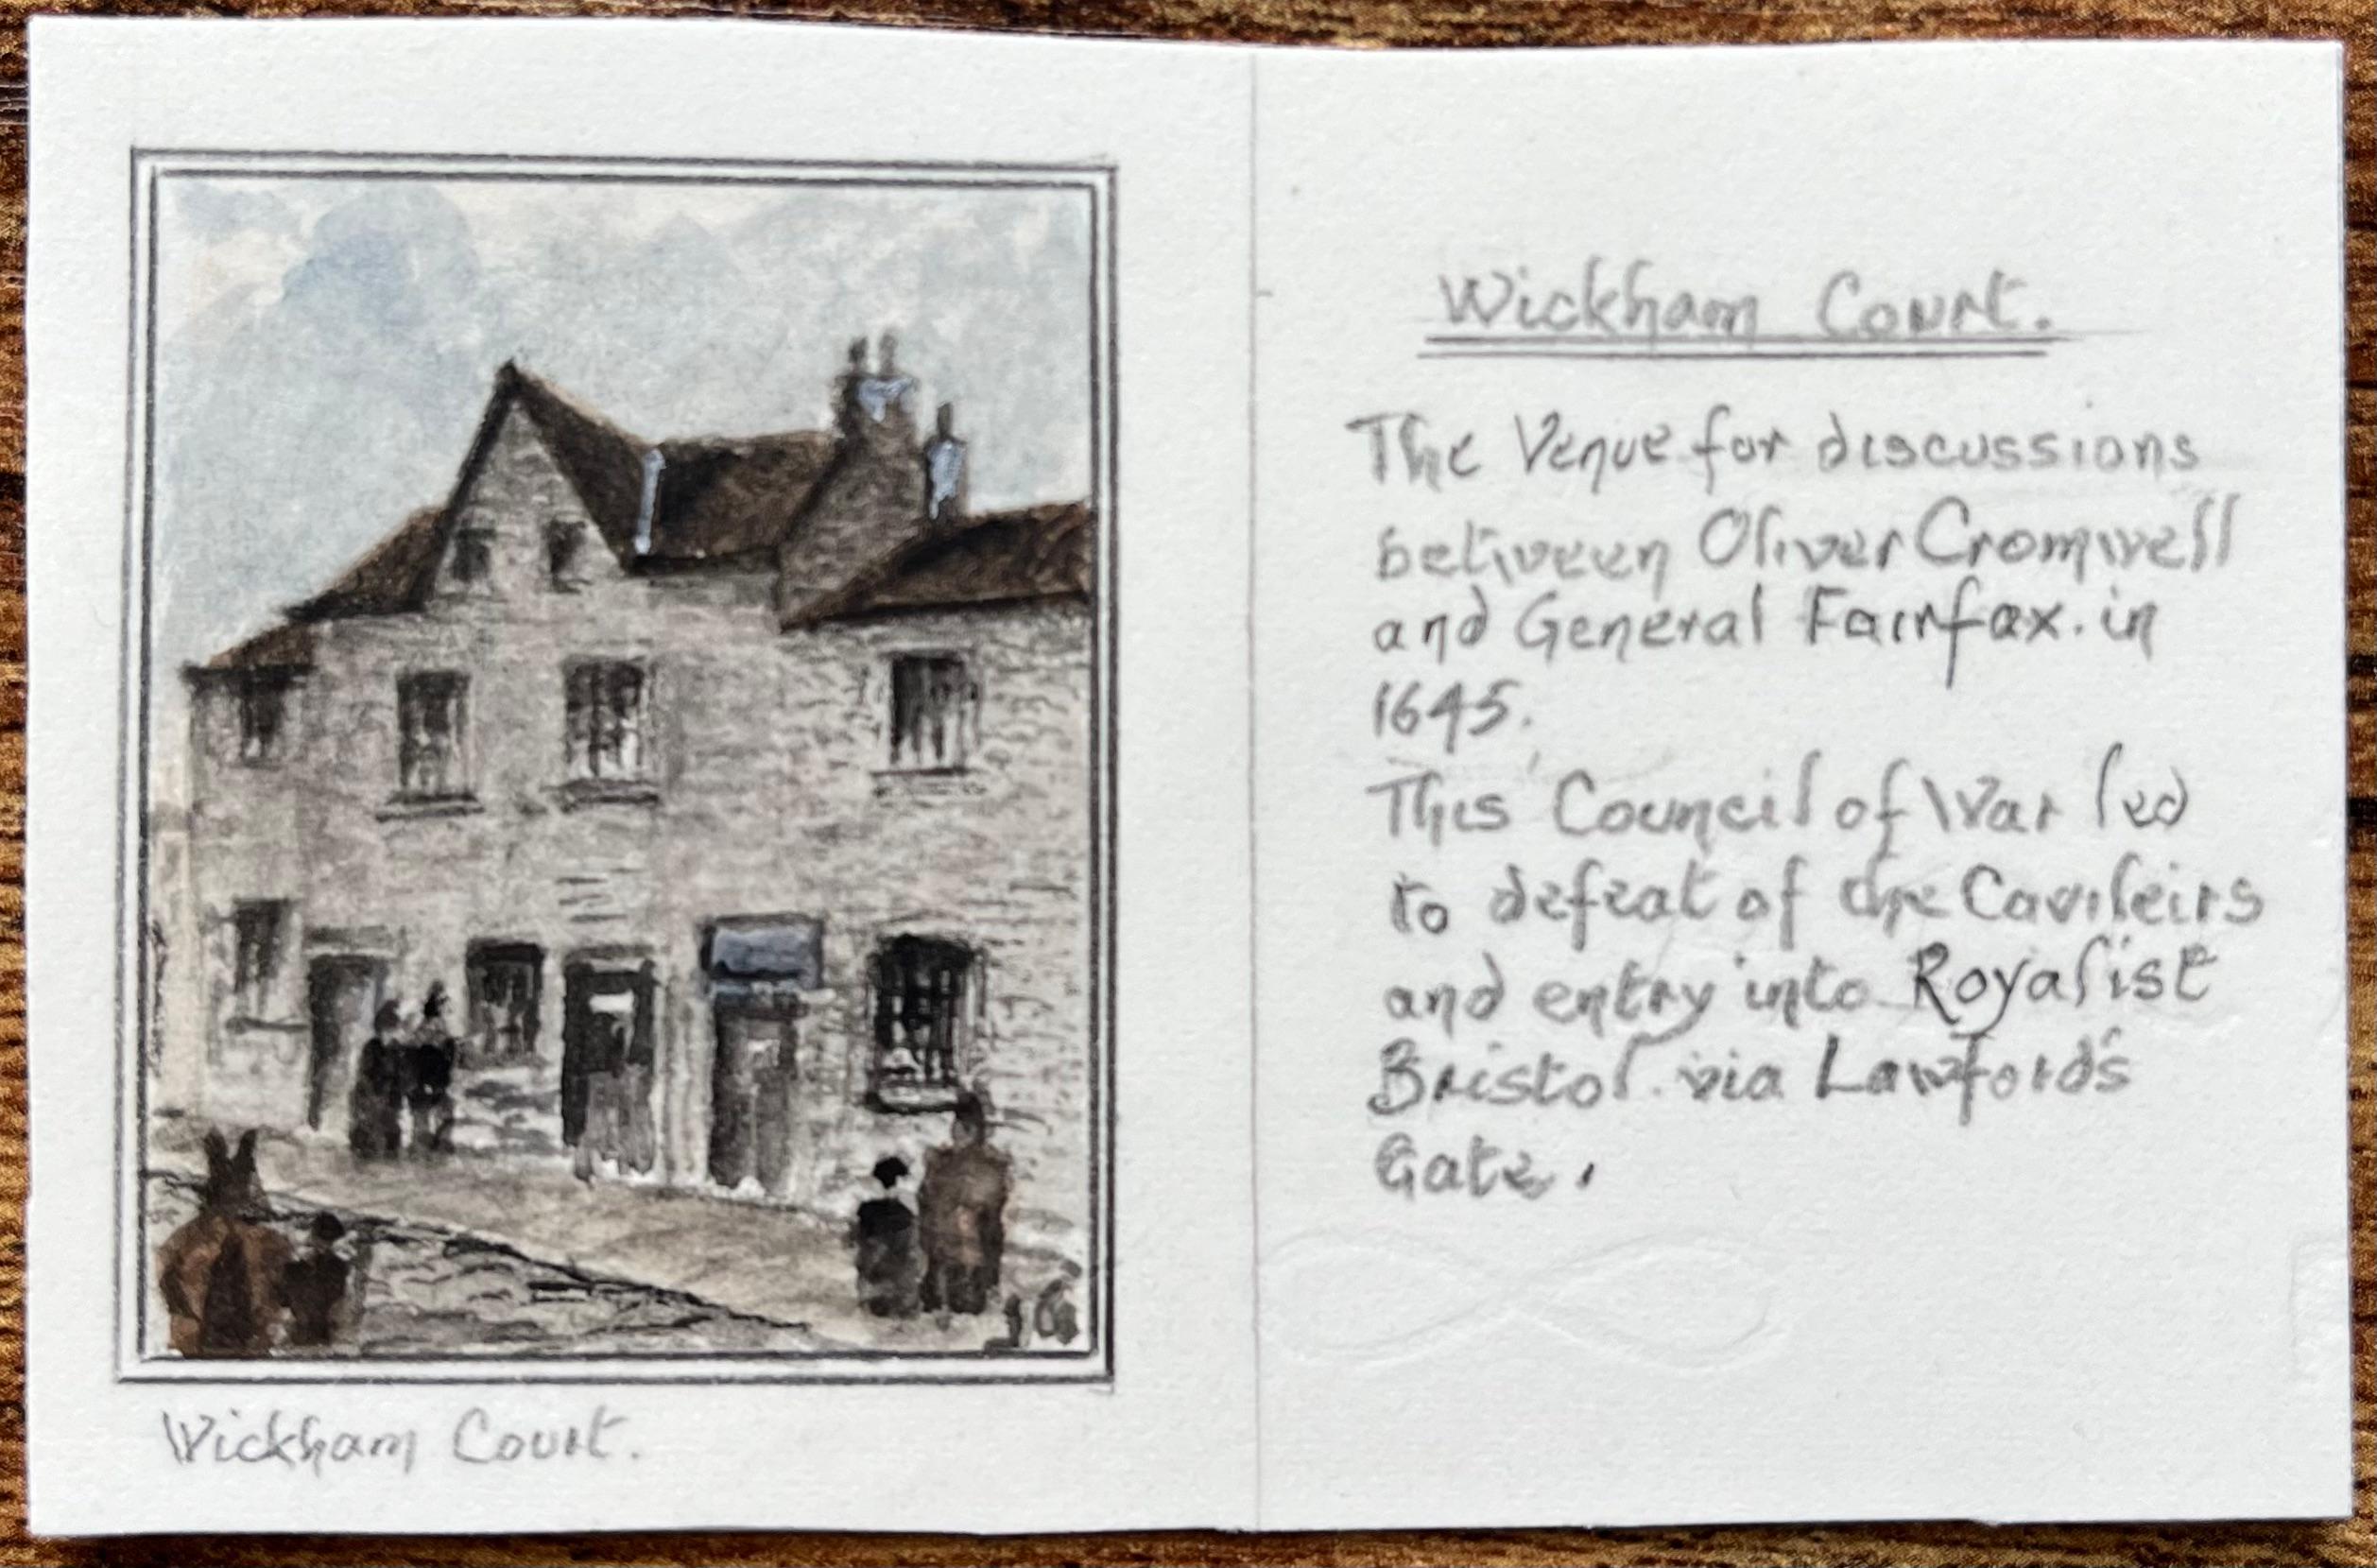 JG
Wickham Court.
Wickham Court.
The Venue for discussions
between Oliver Cromwell
and General Fairfax. in
1645.
This Council of War led
to defeat of the Cavileirs
and entry into Royalist
Bristol. via Lawford's
Gate.